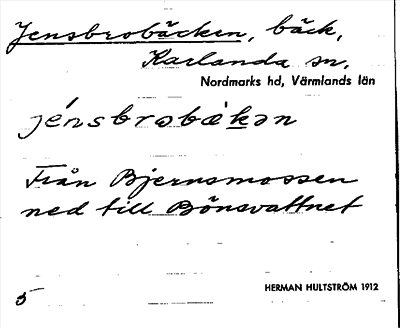 Jensbrobäcken, bäck,
Karlanda sn,
Nordmarks hd, Värmlands län
jénsbrobækən
Från Bjernsmossen
ned till Bönsvattnet
5
HERMAN HULTSTRÖM 1912